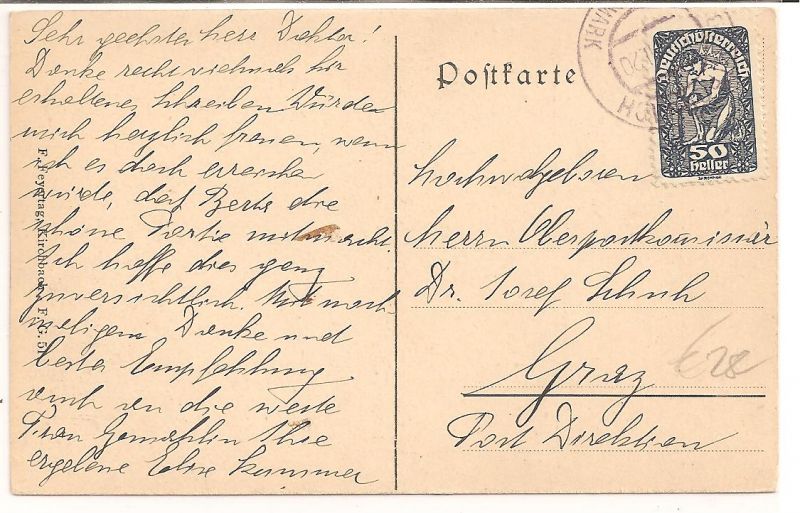 Sehr geehrter Herr Doktor!
Danke recht vielmals für
erhaltene Schreiben Würde
mich herzlich freuen, wenn
ich es doch erreichen
würde, daß Berta die
schöne Partie mitmacht.
Ich hoffe dies ganz
zuversichtlich. Mit noch
maligem Danke und
bester Empfehlung
auch an die werte
Frau Gemahlin Ihre
ergebene Elise Kummer
F. Feyertag, Kirchbach. F. G. 51
Postkarte
MARK
Deutschösterreich
50
Heller
Hochwohlgeboren
Herrn Oberpostkomissär
Dr. Josef Schuh
Graz
Post Direktion
€28